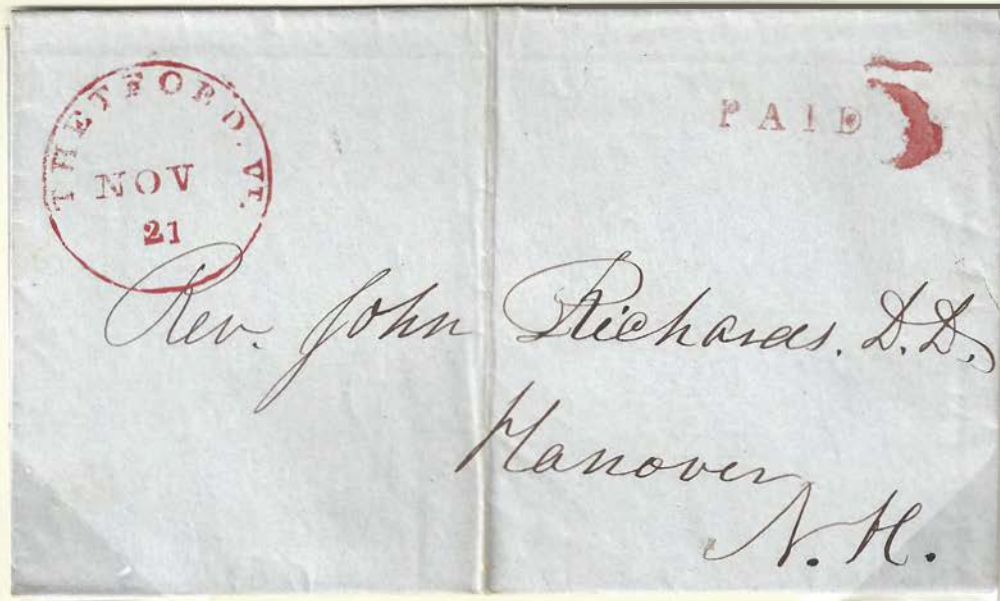 THETFORD. VT.
NOV
21
PAID 5
Rev. John Richards. D.D.
Hanover
N. H.